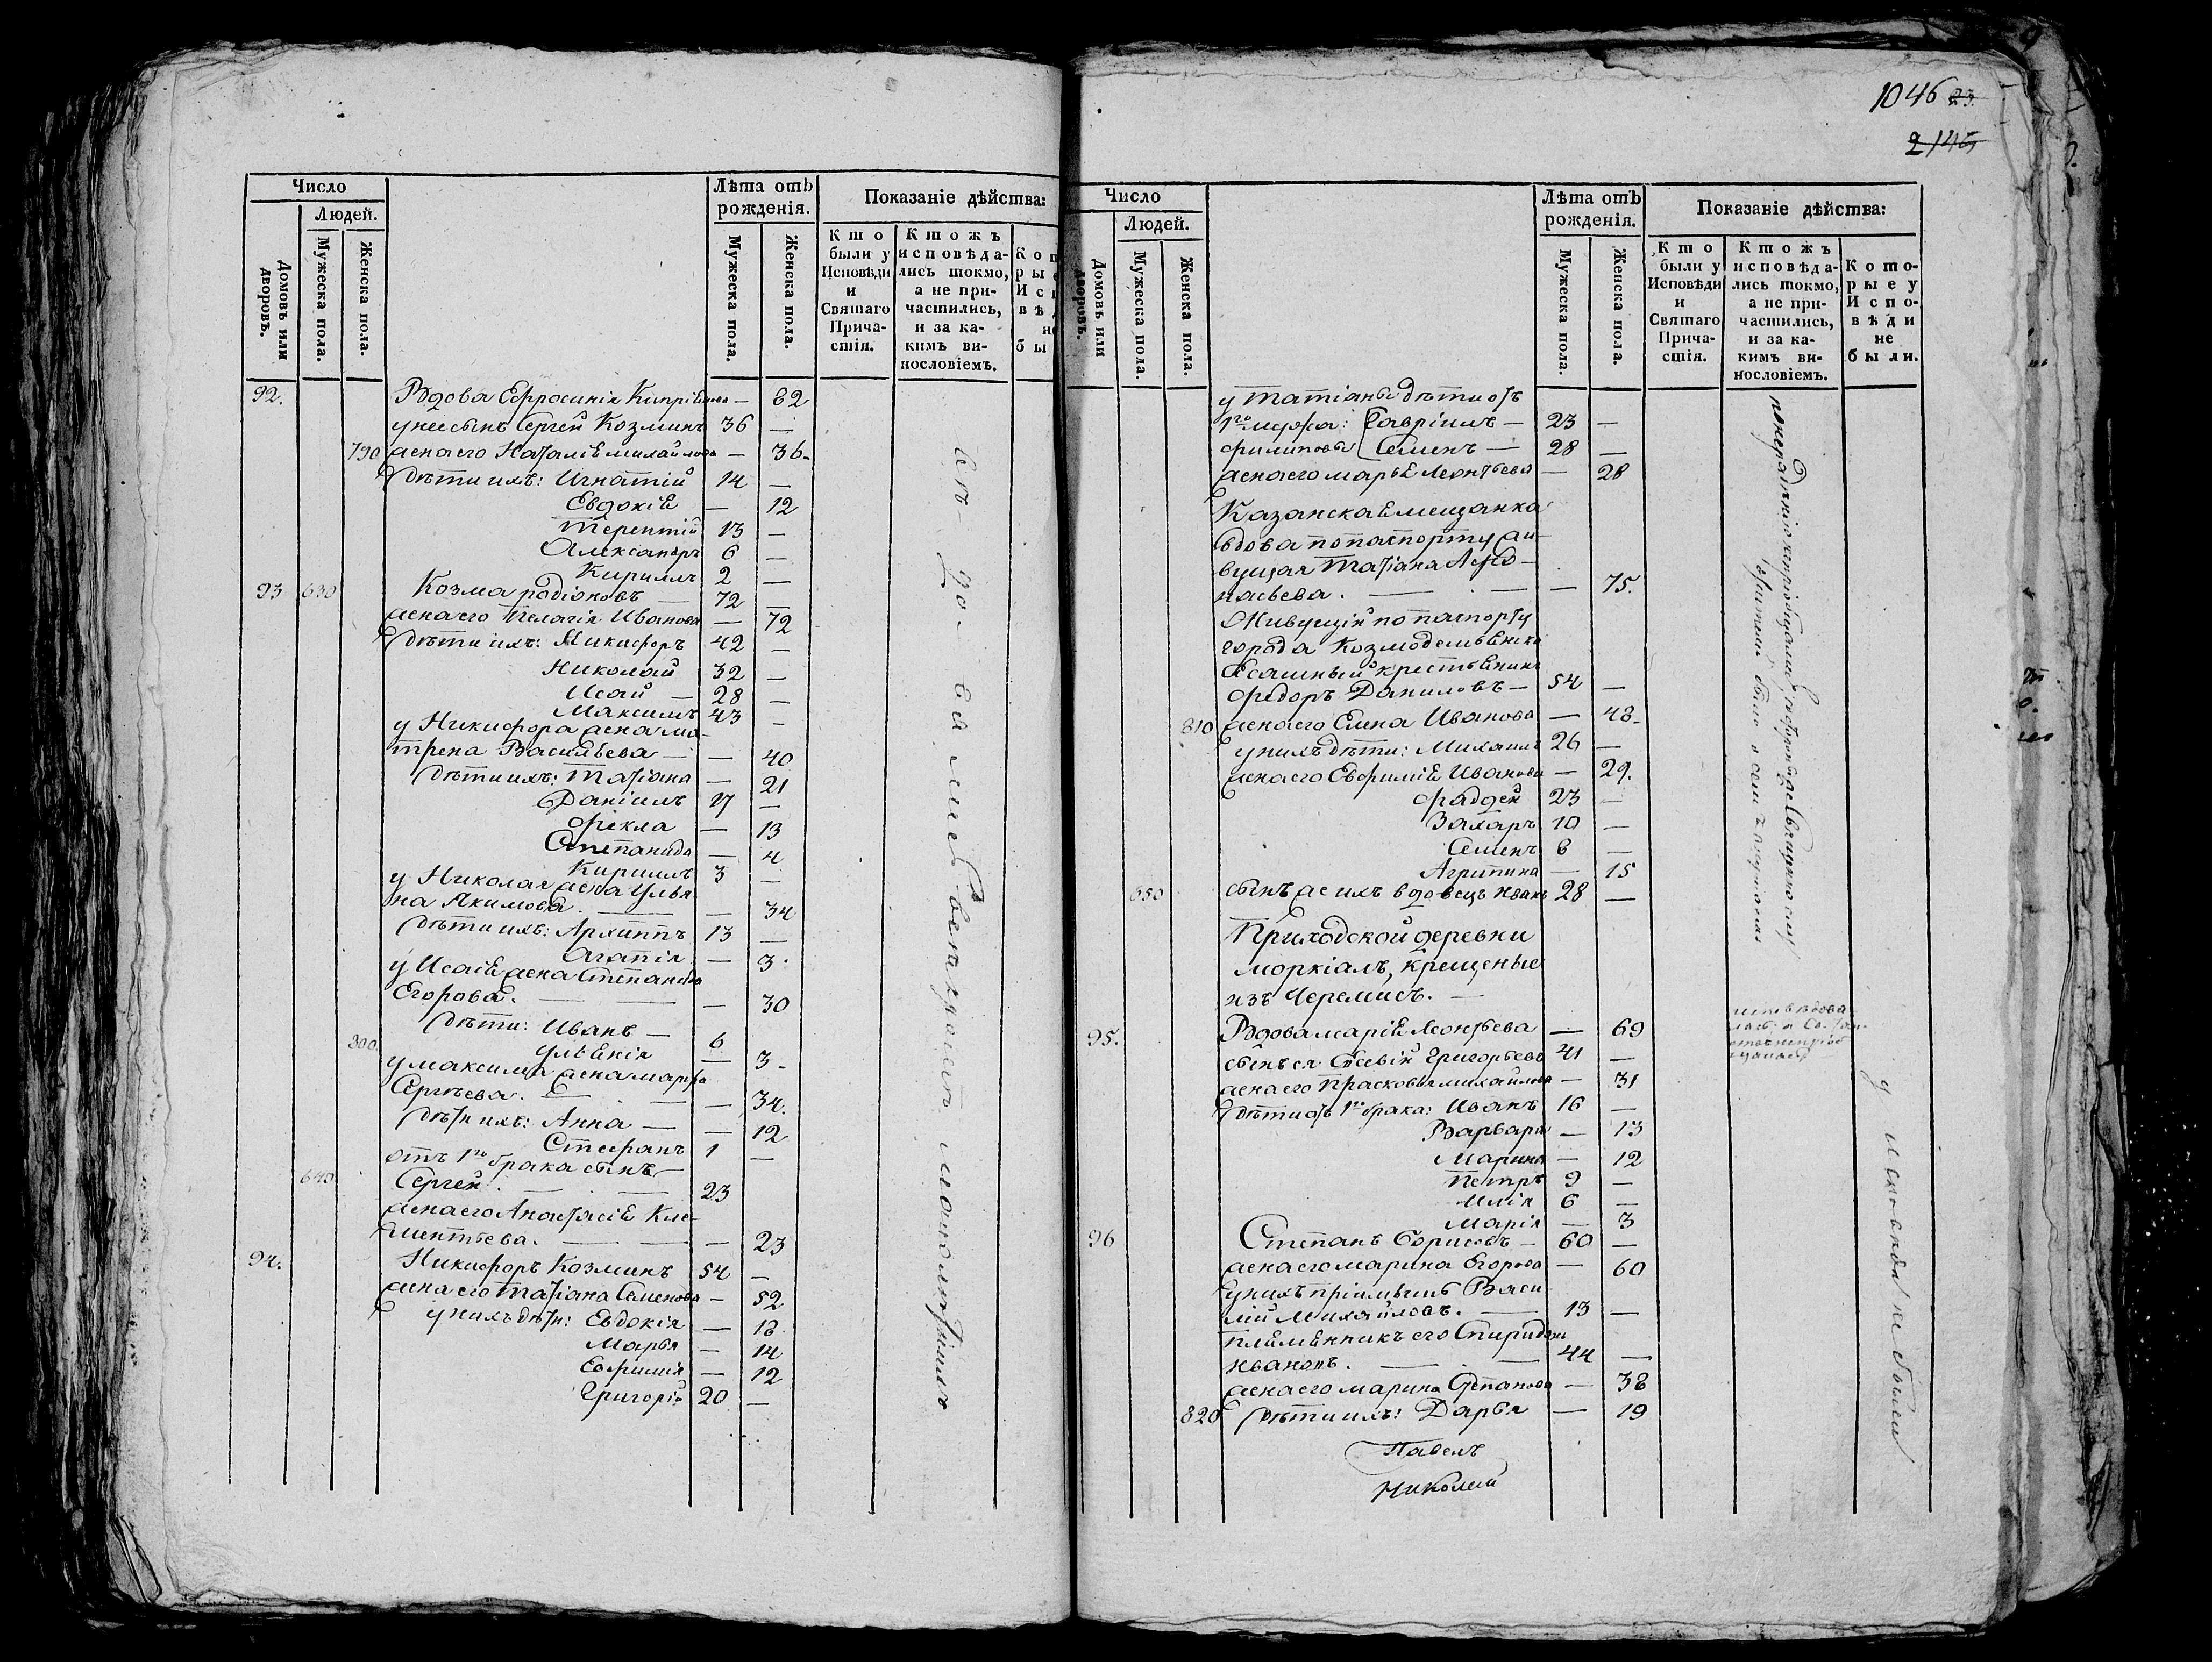 Число
Людей.
Домовъ или дворовъ.
Мужеска пола.
Женска пола.
Лѣта отъ рожденія.
Мужеска пола.
Женска пола.
Показаніе дѣйства:
Кто были у Исповѣди и Святаго Причастія.
Ктожъ исповѣдались токмо, а не причастились, и за какимъ винословіемъ.
92. Вдова Евфросинія Кипріянова — 62
у нее сынъ Сергей Козминъ 36 —
790 жена его Наталія Михайлова — 36.
Дѣти ихъ: Игнатій 14 —
Евдокія — 12
Терентій 13 —
Александръ 6 —
Кириллъ 2 —
93 630 Козма Родіоновъ 72 —
жена его Пелагія Иванова — 72
Дѣти ихъ: Никифоръ 42 —
Николай 32 —
Исай — 28 —
Максимъ 43 —
у Никифора жена Ма-
трена Васильева — — 40
Дѣти ихъ: Татіана — 21
Даніилъ 17 —
Фекла — 13
Степанида — 4
Кириллъ 3 —
у Николая жена Улья-
на Якимова. — — 34
Дѣти ихъ: Архиппъ 13 —
Агапія — 3.
у Исаія жена Степанида
Егорова. — — 30
Дѣти: Иванъ — 6
800. Ульянія — 3.
у Максима жена Марфа
Сергѣева. — — 34.
Дѣти ихъ: Анна — — 12
Стефанъ 1 —
отъ 1го брака сынъ —
640 Сергей. — 23
жена его Анастасія Кле-
ментьева. — — 23
94. Никифоръ Козминъ 54 —
жена его Татіана Семенова — 52
у нихъ дѣти: Евдокія — 18
Марья — 14
Евфимія — 12
Григорій 20 —
1046 23.
2145
Число
Людей.
Домовъ или дворовъ.
Мужеска пола.
Женска пола.
Лѣта отъ рожденія.
Мужеска пола.
Женска пола.
Показаніе дѣйства:
Кто были у Исповѣди и Святаго Причастія.
Ктожъ исповѣдались токмо, а не причастились, и за какимъ винословіемъ.
Которые у Исповѣди не были.
у Татіаны дѣти отъ
1го мужа: Гавріилъ — 23 —
Филиповы Семенъ — 28 —
жена его Марья Леонтьева — 28
Казанская мещанка
вдова по паспорту жи-
вущая Татіана Афо-
насьева. — — 75.
Живущій по паспорту
города Козмодемьянска
Ясашный крестьянинъ
Федоръ Даниловъ — 54 —
810 жена его Елена Иванова — 48.
у нихъ дѣти: Михаилъ 26 —
жена его Евфимія Иванова — 29.
Фаддей 23 —
Захаръ 10 —
Семенъ 6 —
Агрипина — 15
650 сынъ же ихъ вдовецъ Иванъ 28 —
Приходской деревни
Моркіалъ, крещеные
изъ Черемисъ. —
95. Вдова Марія Леонтьева — 69
сынъ ея Григорьевъ 41 —
жена его Прасковья Михайлова — 31
Дѣти отъ 1го брака: Иванъ 16 —
Варвара — 13
Марина — 12
Петръ 9 —
Илія 6 —
Марія — 3
96 Степанъ Борисовъ — 60 —
жена его Марина Егорова — 60
у нихъ пріимышъ Васи-
лій Михайловъ. — 13 —
племянникъ его Спиридонъ
Ивановъ. — — 44 —
жена его Марина Степанова — 38
820 Дѣти ихъ: Дарья — 19
Павелъ
Николай
у исповѣди не были